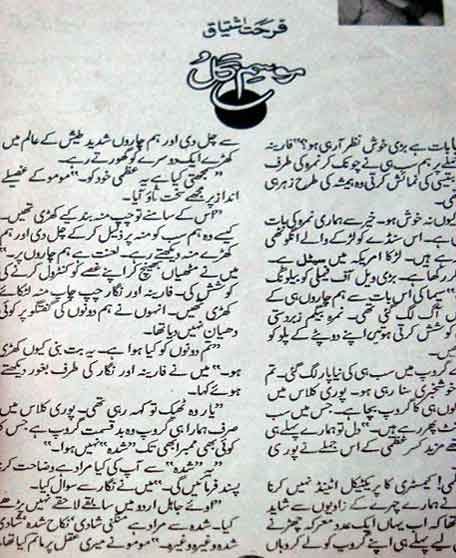 فرحت اشتیاق
موسمِ گل
یا بات ہے بڑی خوش نظر آ رہی ہو؟“ فارینہ
پر ہم سب ہی نے چونک کر نمرہ کی طرف
بتیسی کی نمائش کرتی وہ ہمیشہ کی طرح زہر ہی
کیوں نہ خوش ہو۔ خیر سے ہماری نمرہ کی بات
ہے۔ اس سنڈے کو لڑکے والے انگوٹھی
رہے ہیں۔ لڑکا امریکہ میں سیٹل ہے
کر رکھا ہے۔ بڑی ویل آف فیملی کو بیلونگ
سیما کی اس بات سے ہم چاروں ہی کے
آگ لگ گئی تھی۔ نمرہ بیگم زبردستی
کوشش کرتی ہوئیں اپنے دوپٹے کے پلو کو
گروپ میں سب ہی کی نیا پار لگ گئی۔ تم
خوشخبری سنا رہی ہو۔ پوری کلاس میں
وں ہی کا گروپ بچا ہے۔ جس میں سب
پھر رہے ہیں۔“ دل تو ہمارے پہلے ہی
مزید کسر عظمٰی کے اس جملے نے پوری
کیمسٹری کا پریکٹیکل اٹینڈ نہیں کرنا
نے ہمارے چہرے کے زاویوں سے شاید
تھا کہ اب یہاں ایک عدد معرکہ چھڑنے
لیے پہلے ہی اپنے گروپ کو لے کر وہاں
سے چل دی اور ہم چاروں شدید طیش کے عالم میں
کھڑے ایک دوسرے کو گھورتے رہے۔
”سمجھتی کیا ہے یہ عظمٰی خود کو۔“ مومو کے غصیلے
انداز پر مجھے سخت تاؤ آیا۔
”اس کے سامنے تو چپ منہ بند کیے کھڑی تھیں۔
کیسے وہ ہم سب کو منہ پر ذلیل کر کے چل دی اور ہم
کھڑے منہ دیکھتے رہے۔ لعنت ہے ہم چاروں پر۔“
میں نے مٹھیاں بھینچ کر اپنے غصے کو کنٹرول کرنے کی
کوشش کی۔ فارینہ اور نگار چپ چاپ منہ لٹکائے
کھڑی تھیں۔ انہوں نے ہم دونوں کی گفتگو پر کوئی
دھیان نہیں دیا تھا۔
”تم دونوں کو کیا ہوا ہے۔ یہ بت بنی کیوں کھڑی
ہو۔“ میں نے فارینہ اور نگار کی طرف بغور دیکھتے
ہوئے کہا۔
”یار وہ ٹھیک تو کہہ رہی تھی۔ پوری کلاس میں
صرف ہمارا ہی گروپ وہ بدقسمت گروپ ہے جس کا
کوئی بھی ممبر ابھی تک ”شدہ“ نہیں ہوا۔“
”شدہ“ سے آپ کی کیا مراد ہے وضاحت کرنا
پسند فرمائیں گی۔“ میں نے نگار سے سوال کیا۔
”اوئے جاہل اردو میں سابقے لاحقے نہیں پڑھے
کیا۔ شدہ سے مراد ہے منگنی شدہ، نکاح شدہ، شادی
شدہ وغیرہ وغیرہ۔“ مومو نے میری عقل پر ماتم کیا تھا۔